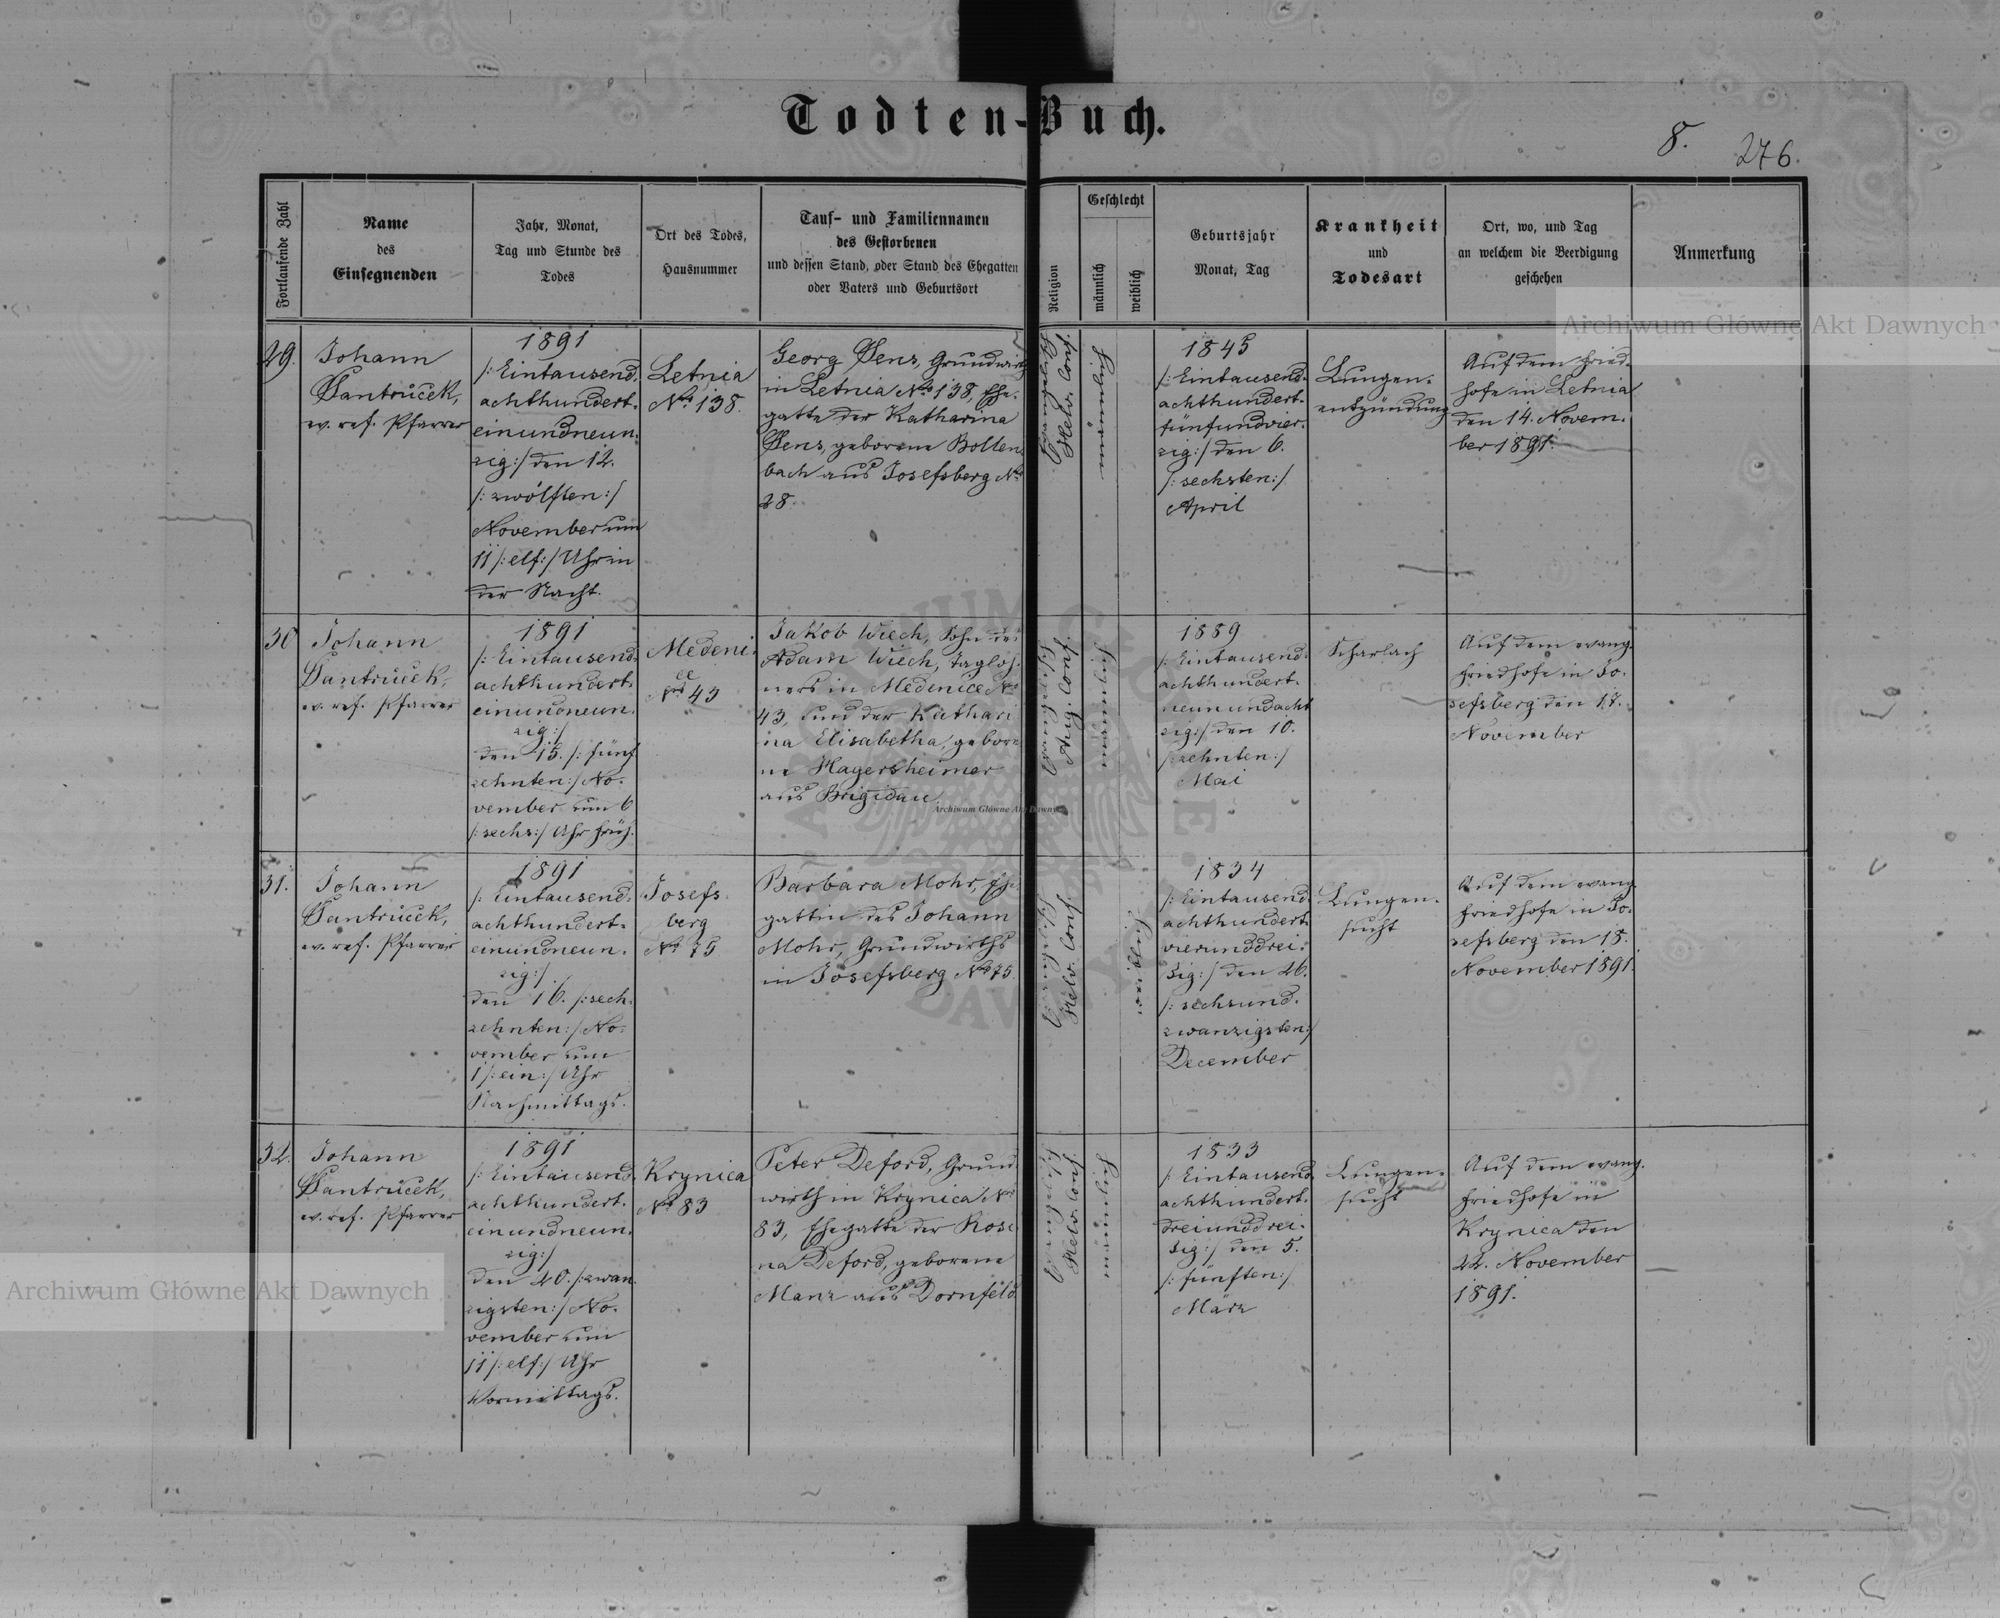 Todten-Buch.
8.
276.
Fortlaufende Zahl
Name
des
Einsegnenden
Jahr, Monat,
Tag und Stunde des
Todes
Ort des Todes,
Hausnummer
Tauf- und Familiennamen
des Gestorbenen
und dessen Stand, oder Stand des Ehegatten
oder Vaters und Geburtsort
Religion
Geschlecht
männlich
weiblich
Geburtsjahr
Monat, Tag
Krankheit
und
Todesart
Ort, wo, und Tag
an welchem die Beerdigung
geschehen
Anmerkung
29.
Johann
Pantrůček,
ev. ref. Pfarrer
1891
/: Eintausend.
achthundert.
einundneun.
zig :/ den 12.
/: zwölften :/
November um
11 /: elf :/ Uhr in
der Nacht.
Letnia
No 138.
Georg Senz, Grundwirth
in Letnia No 138, Ehe.
gatte der Katharina
Senz, geborene Bollen
bach aus Josefsberg No
28.
Evangelisch
Helv. Conf.
1845
/: Eintausend.
achthundert.
fünfundvier.
zig :/ den 6.
/: sechsten :/
April
Lungen.
entzündung
Auf dem Fried.
hofe in Letnia
den 14. Novem.
ber 1891.
30
Johann
Pantrůček,
ev. ref. Pfarrer
1891
/: Eintausend.
achthundert.
einundneun.
zig :/
den 15. /: fünf
zehnten :/ No.
vember um 6
/: sechs :/ Uhr früh.
Medeni.
ce
No 43
Jakob Wiech, Sohn des
Adam Wiech, Taglöh.
ners in Medenice No
43, und der Kathari
na Elisabetha, gebore
ne Hagersheimer
aus Brigidau
Evangelisch
Aug. Conf.
1889
/: Eintausend.
achthundert.
neunundacht
zig :/ den 10.
/: zehnten :/
Mai
Scharlach
Auf dem evang.
Friedhofe in Jo.
sefsberg den 17.
November
31.
Johann
Pantrůček,
ev. ref. Pfarrer
1891
/: Eintausend.
achthundert.
einundneun.
zig :/
den 16. /: sech.
zehnten :/ No.
vember um
1 /: ein :/ Uhr
Nachmittags.
Josefs.
berg
No 75
Barbara Mohr, Ehe
gattin des Johann
Mohr, Grundwirths
in Josefsberg No 75
Evangelisch
Helv. Conf.
1834
/: Eintausend.
achthundert.
vierunddrei.
ßig :/ den 26.
/: sechsund.
zwanzigsten :/
December
Lungen.
sucht
Auf dem evang.
Friedhofe in Jo.
sefsberg den 18.
November 1891.
32.
Johann
Pantrůček,
ev. ref. Pfarrer
1891
/: Eintausend.
achthundert.
einundneun.
zig :/
den 20. /: zwan
zigsten :/ No.
vember um
11 /: elf :/ Uhr
Vormittags.
Krynica
No 83
Peter Deford, Grund.
wirth in Krynica No
83, Ehegatte der Rosi
na Deford, geborene
Manz aus Dornfeld.
Evangelisch
Helv. Conf.
1833
/: Eintausend.
achthundert.
dreiunddrei.
ßig :/ den 5.
/: fünften :/
März
Lungen.
sucht
Auf dem evang.
Friedhofe in
Krynica den
22. November
1891.
Archiwum Główne Akt Dawnych
Archiwum Główne Akt Dawnych
Archiwum Główne Akt Dawnych